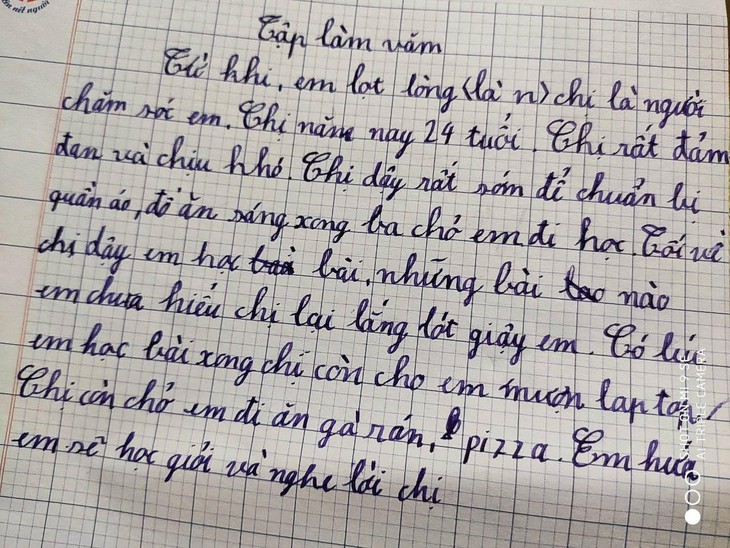 ện nết người
Tập làm văm
Từ khi, em lọt lòng (là n) chị là người
chăm sóc em. Chị năm nay 24 tuổi. Chị rất đảm
đan và chịu khó. Chị dậy rất sớm để chuẩn bị
quần áo, đồ ăn sáng xong ba chở em đi học. Tối về
chị dậy em học bài, những bài nào
em chưa hiểu chị lại lắng lót giậy em. Có lúc
em học bài xong chị còn cho em mượn lap top
Chị còn chở em đi ăn gà rán, pizza. Em hứa
em sẽ học giỏi và nghe lời chị
SHOT ON MI 9 SE
AI TRIPLE CAMERA